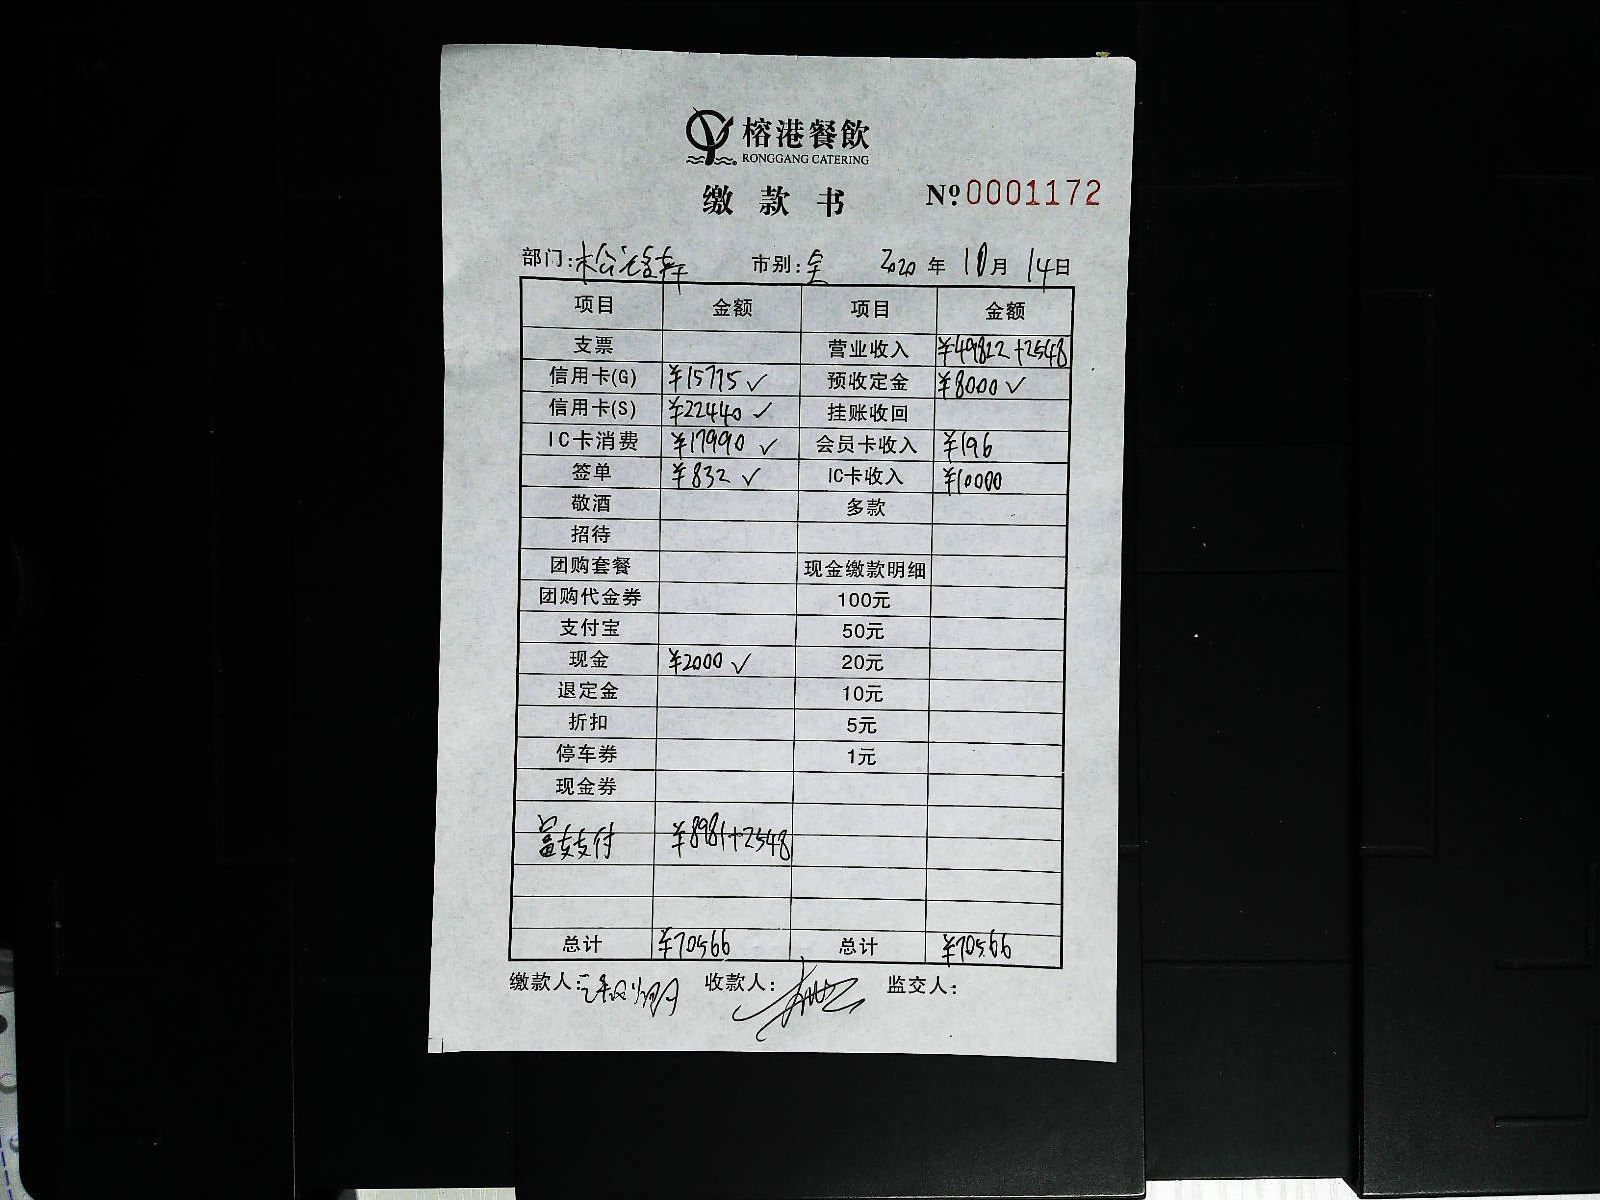 榕港餐飲
RONGGANG CATERING
缴款书 №0001172
部门: 市别:全 2020年10月14日
项目 金额 项目 金额
支票 营业收入 ¥49822+2548
信用卡(G) ¥15775✓ 预收定金 ¥8000✓
信用卡(S) ¥22440✓ 挂账收回
IC卡消费 ¥17990✓ 会员卡收入 ¥196
签单 ¥832✓ IC卡收入 ¥10000
敬酒 多款
招待
团购套餐 现金缴款明细
团购代金券 100元
支付宝 50元
现金 ¥2000✓ 20元
退定金 10元
折扣 5元
停车券 1元
现金券
富友支付 ¥8981+2548
总计 ¥70566 总计 ¥70566
缴款人: 收款人: 监交人: